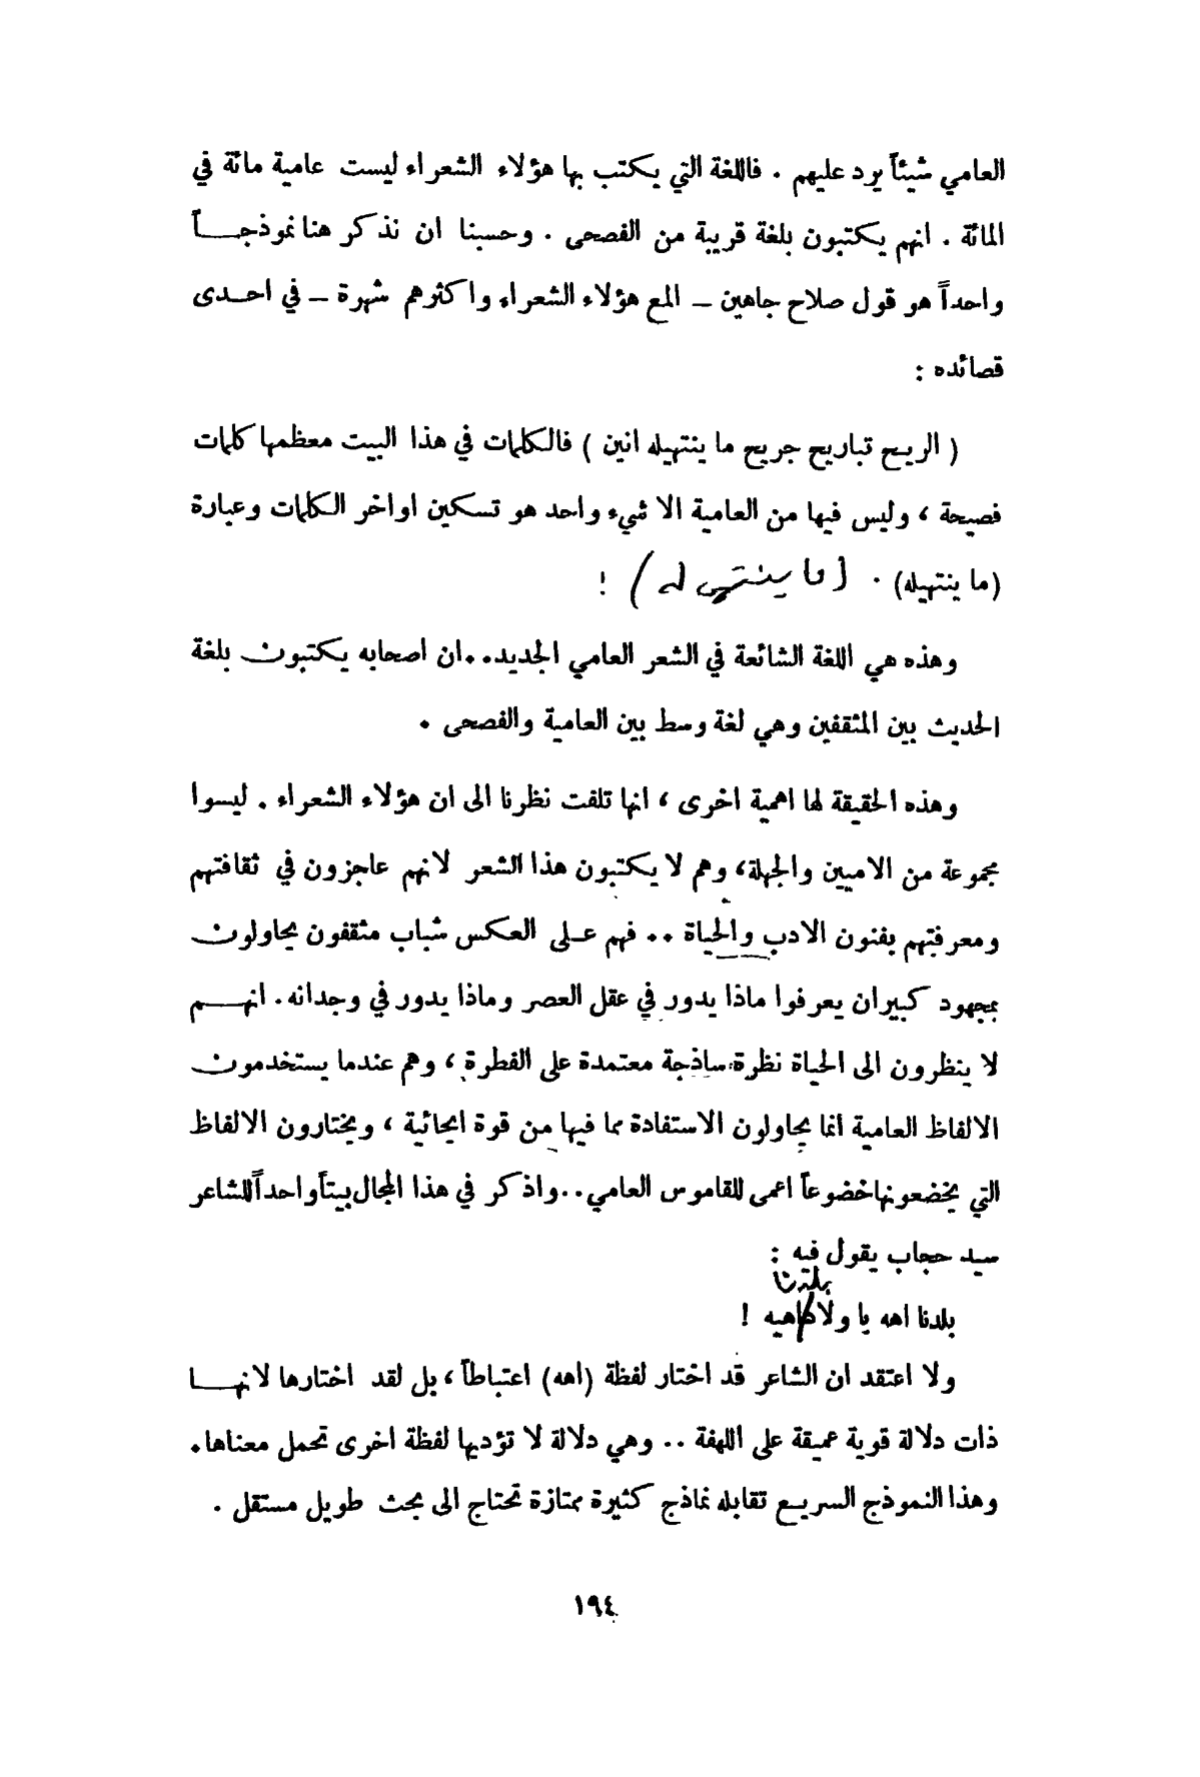 العامي شيئاً يرد عليهم . فاللغة التي يكتب بها هؤلاء الشعراء ليست عامية مائة في
المائة . انهم يكتبون بلغة قريبة من الفصحى . وحسبنا ان نذكر هنا نموذجـــاً
واحداً هو قول صلاح جاهين – المع هؤلاء الشعراء واكثرهم شهرة – في احـدى
قصائده :
( الريح تباريح جريح ما ينتهيله انين ) فالكلمات في هذا البيت معظمها كلمات
فصيحة ، وليس فيها من العامية الا شيء واحد هو تسكين اواخر الكلمات وعبارة
(ما ينتهيله) . ( ما ينتهي له ) !
وهذه هي اللغة الشائعة في الشعر العامي الجديد..ان اصحابه يكتبون بلغة
الحديث بين المثقفين وهي لغة وسط بين العامية والفصحى .
وهذه الحقيقة لها اهمية اخرى ، انها تلفت نظرنا الى ان هؤلاء الشعراء . ليسوا
مجموعة من الاميين والجهلة، وهم لا يكتبون هذا الشعر لانهم عاجزون في ثقافتهم
ومعرفتهم بفنون الادب والحياة .. فهم عـلى العكس شباب مثقفون يحاولون
بمجهود كبيران يعرفوا ماذا يدور في عقل العصر وماذا يدور في وجدانه . انهـــم
لا ينظرون الى الحياة نظرة ساذجة معتمدة على الفطرة ، وهم عندما يستخدمون
الالفاظ العامية انما يحاولون الاستفادة مما فيها من قوة ايحائية ، ويختارون الالفاظ
التي يخضعونها خضوعاً اعمى للقاموس العامي..واذكر في هذا المجال بيتاً واحداً للشاعر
سيد حجاب يقول فيه :
بلدنا
بلدنا اهه يا ولا هيه !
ولا اعتقد ان الشاعر قد اختار لفظة (اهه) اعتباطاً ، بل لقد اختارها لانهـــا
ذات دلالة قوية عميقة على اللهفة .. وهي دلالة لا تؤديها لفظة اخرى تحمل معناها.
وهذا النموذج السريع تقابله نماذج كثيرة ممتازة تحتاج الى بحث طويل مستقل .
١٩٤